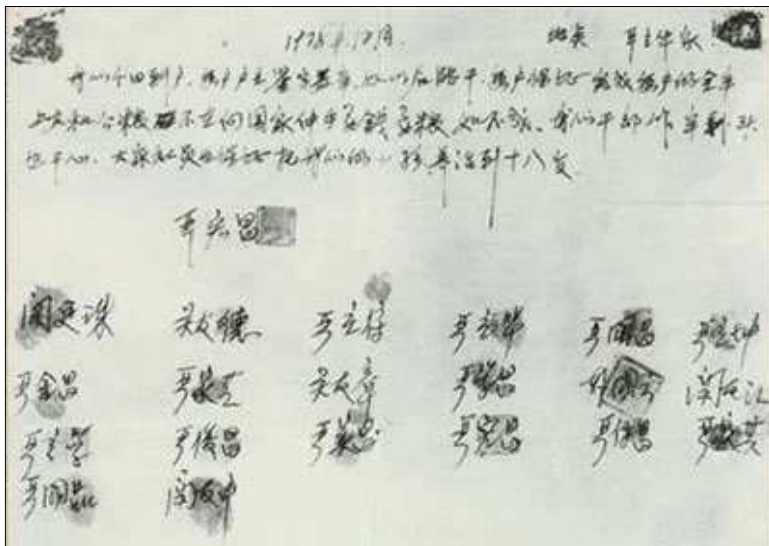 1978年12月. 地点 严立华家.
我们分田到户,每户户主签字盖章,如以后能干,每户保证完成每户的全年
上交和公粮 不在向国家伸手要钱要粮 如不成、我们干部作牢割头
也干心、大家社员也保证把我们的小孩养活到十八岁
严宏昌
关廷珠 关友德 严立符 严立华 严国昌 严立坤
严金昌 严家芝 关友章 严学昌 韩国云 关友江
严立学 严俊昌 严美昌 严宏昌 严付昌 严家其
严国品 关友申